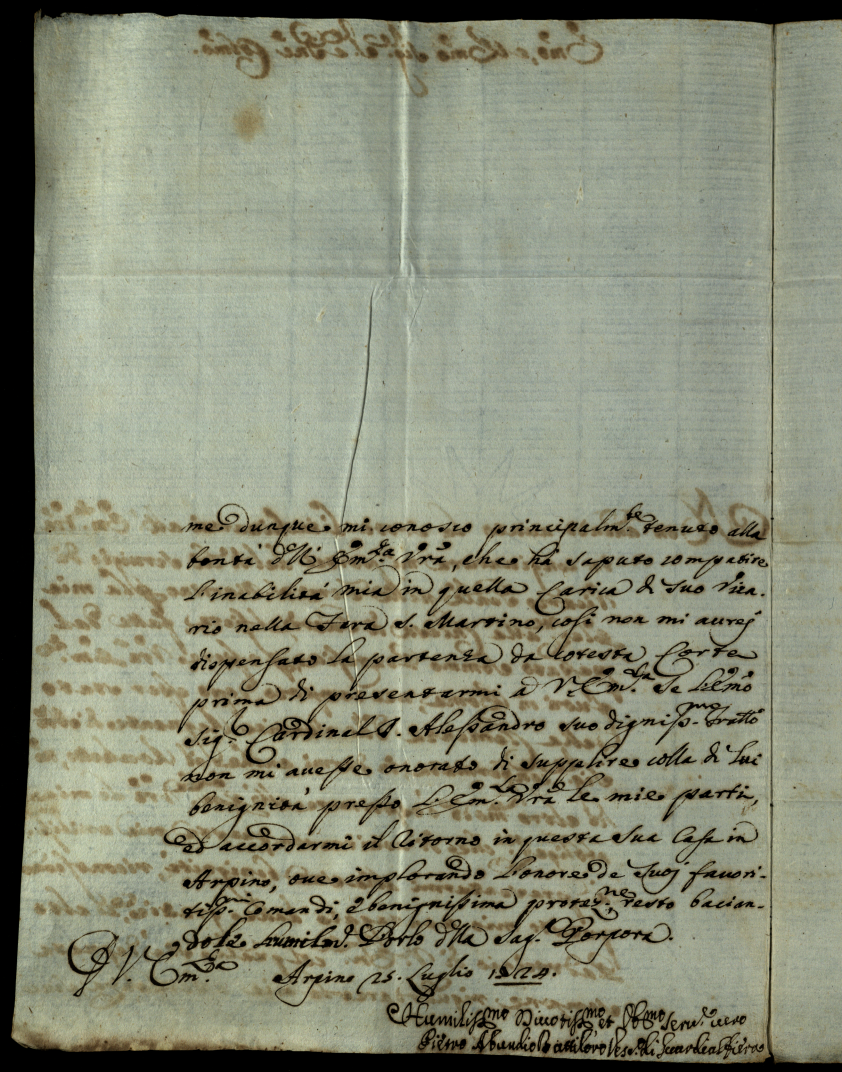 me dunque mi conosco principalm.te tenuto alla
bontà dell' Em.za Vrā, che hà saputo compatire
l'inabilità mia in quella Carica di suo Vica-
rio nella Terra S. Martino, così non mi aurej
dispensato la partenza da cotesta Corte
prima di presentarmi à V. Em.za Se l'Emo
Sig.r Cardinal D. Alessandro suo digniss.mo Fratto
non mi avesse onorato di supplire colla di lui
benignità presso l'Em.za Vrā le mie parti,
ed accordarmi il ritorno in questa sua Casa in
Arpino, ove implorando l'onore de suoj favori-
tiss.mi Comandi, e benignissima protez.ne resto bacian-
dole humilm.te l'orlo della Sag.a Porpora.
D V. Em.za Arpino 25. Luglio 1724.
Humiliss.mo Divotiss.mo et Obmo Seru.e vero
Pietro Abundio Battiloro Vesc.